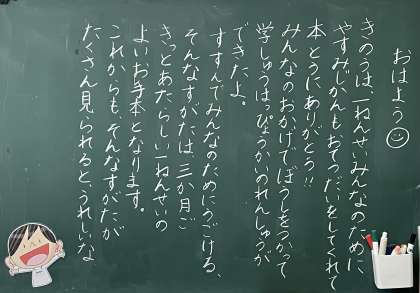 おはよう
きのうは、一ねんせいみんなのために、
やすみじかんも、おてつだいをしてくれて
本とうにありがとう!!
みんなのおかげでぼうしをつかって
学しゅうはっぴょうかいのれんしゅうが
できたよ。
すすんでみんなのためにうごける、
そんなすがたは、三か月ご
きっとあたらしい一ねんせいの
よいお手本となります。
これからも、そんなすがたが
たくさん見られると、うれしいな